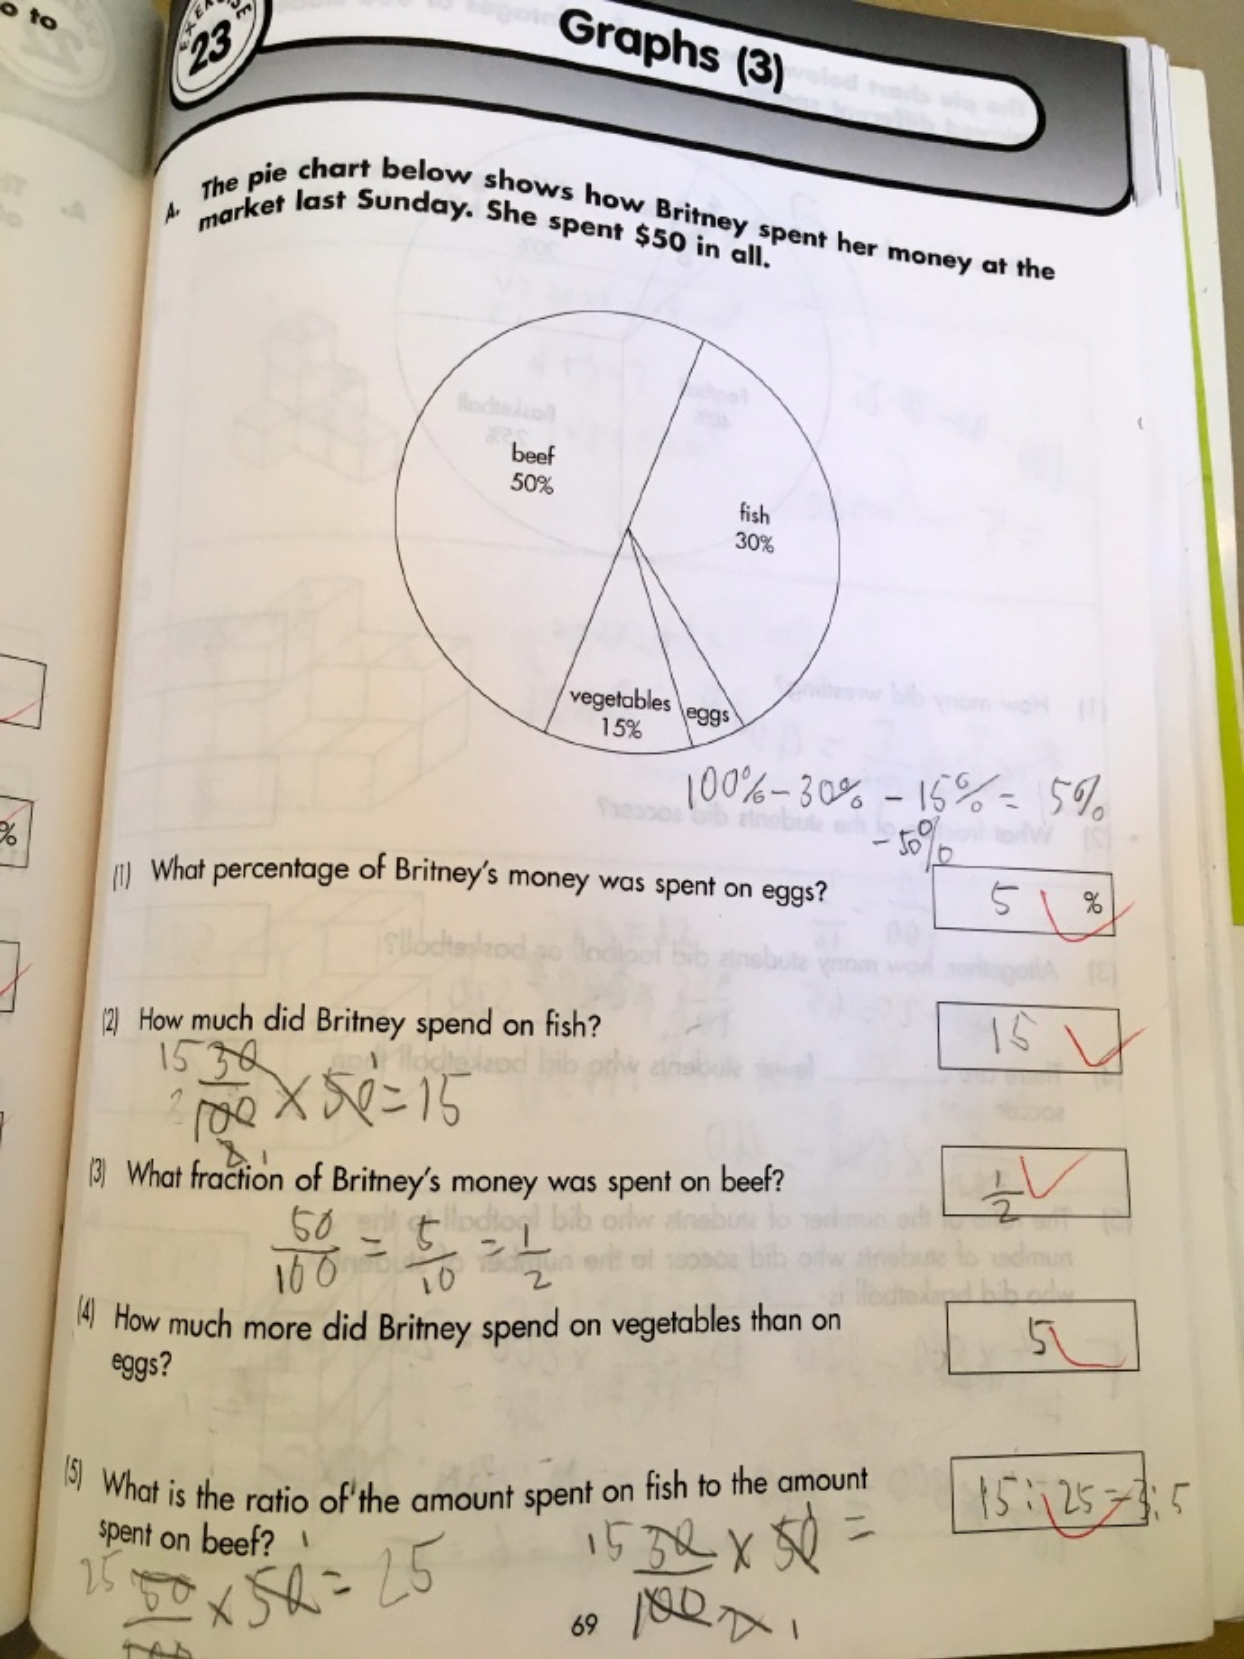 o to
EXERCISE
23
Graphs (3)
A. The pie chart below shows how Britney spent her money at the
market last Sunday. She spent $50 in all.
beef
50%
fish
30%
vegetables
15%
eggs
100% - 30% - 15% = 5%
- 50%
%
(1) What percentage of Britney's money was spent on eggs?
5 %
(2) How much did Britney spend on fish?
15
15 30
100 × 50 = 15
2 1
(3) What fraction of Britney's money was spent on beef?
1/2
50/100 = 5/10 = 1/2
(4) How much more did Britney spend on vegetables than on
eggs?
5
(5) What is the ratio of the amount spent on fish to the amount
spent on beef?
15 : 25 = 3 : 5
15 30/100 × 50 =
25 50/100 × 50 = 25
69